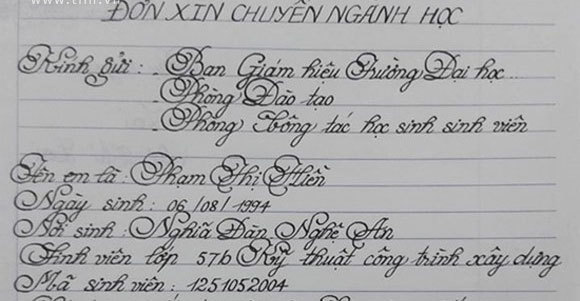 ĐƠN XIN CHUYỂN NGÀNH HỌC
Kính gửi : - Ban Giám hiệu Trường Đại học...
- Phòng Đào tạo
- Phòng Công tác học sinh sinh viên
Tên em là : Phạm Thị Hiền
Ngày sinh : 06/08/1994
Nơi sinh : Nghĩa Đàn, Nghệ An
Sinh viên lớp 57b Kỹ thuật công trình xây dựng
Mã sinh viên : 1251052004